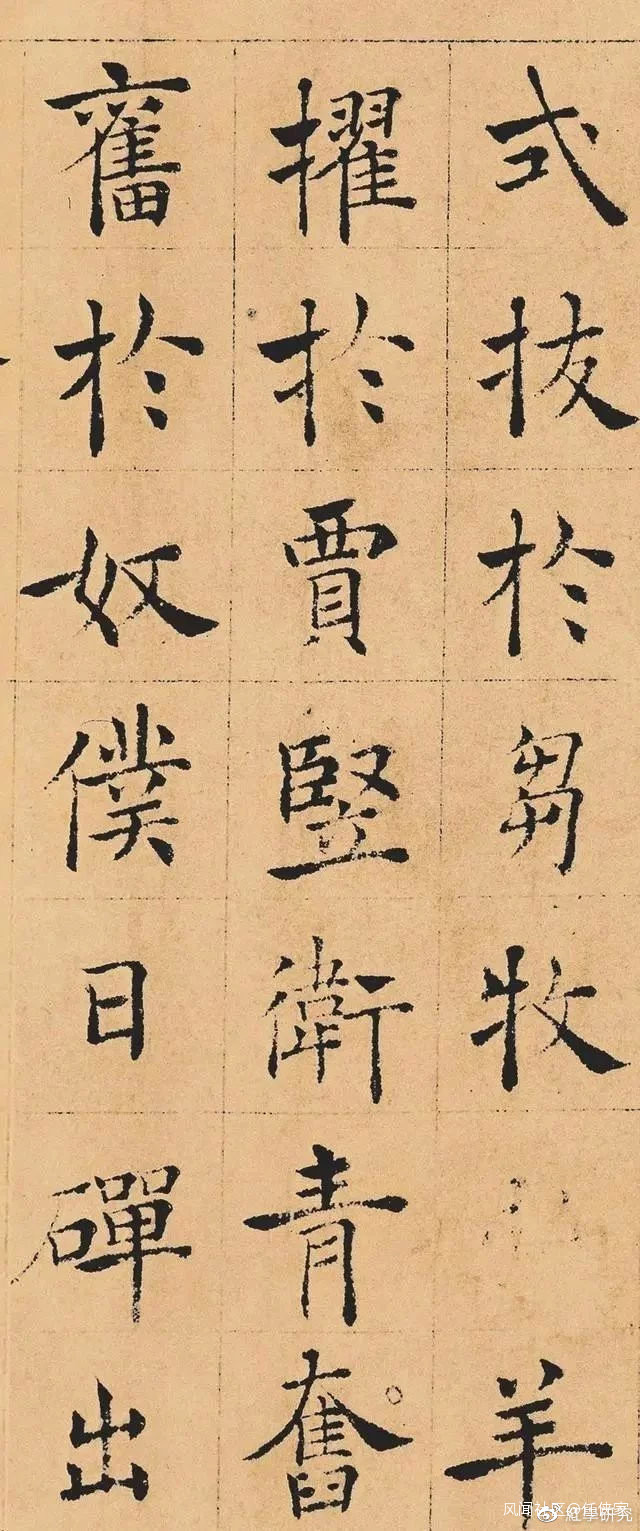 式拔於芻牧羊
擢於賈豎衛青奮
奮於奴僕日磾出
风闻社区
@紅學研究